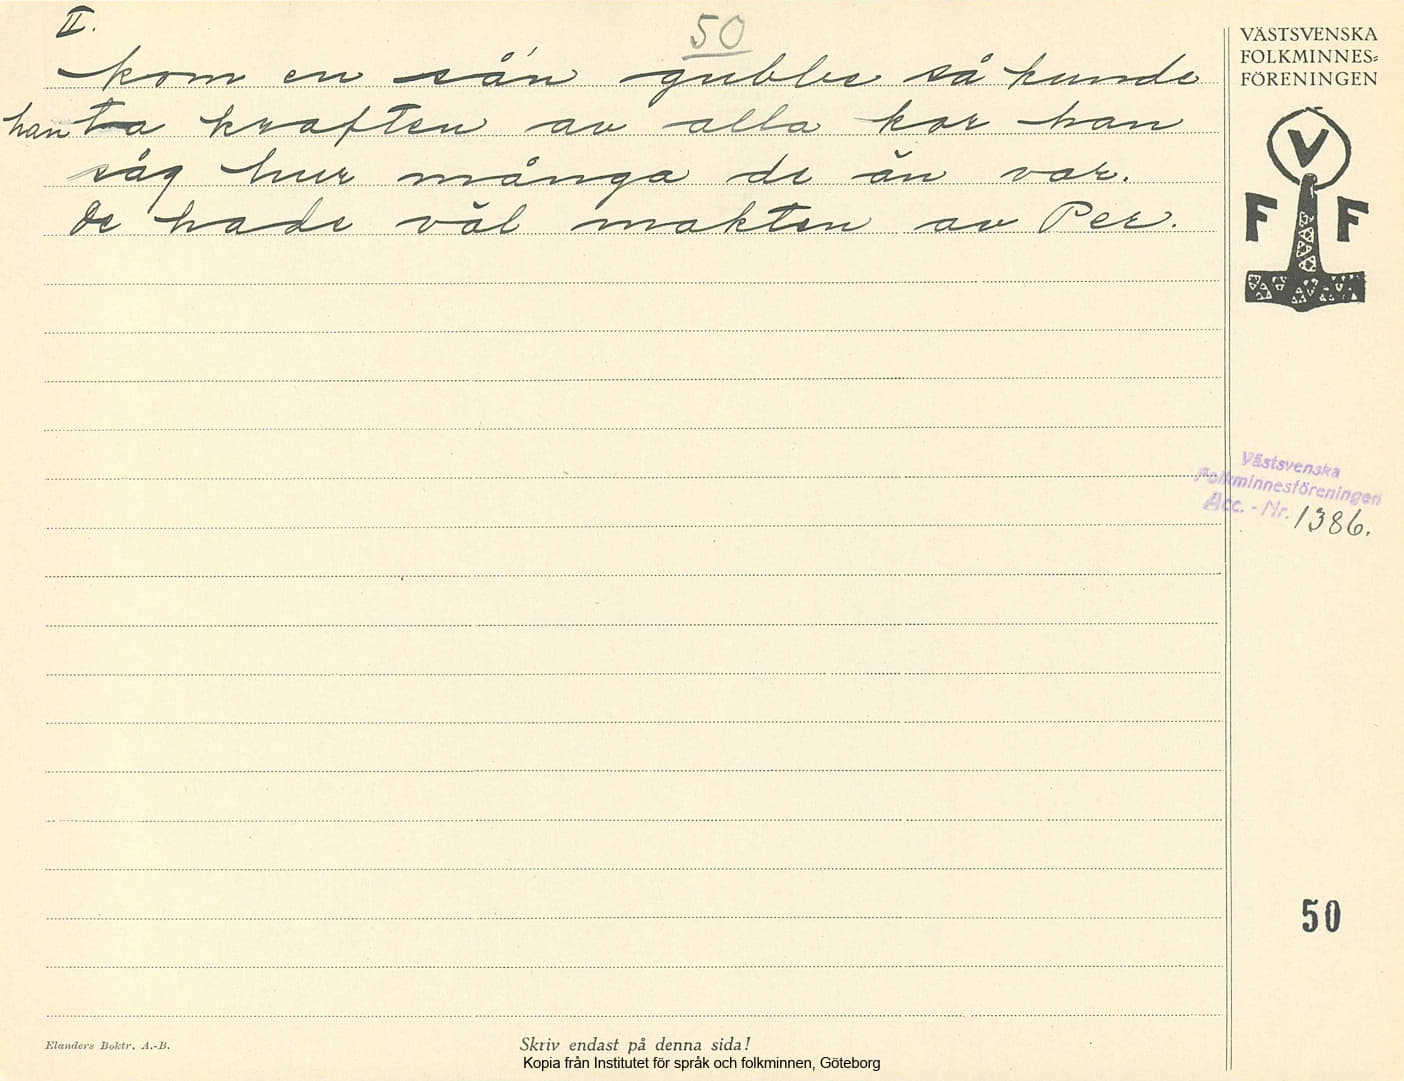 II.
50
kom en så'n gubbe så kunde
han ta kraften av alla kor han
såg hur många de än var.
De hade väl makten av Per.
VÄSTSVENSKA
FOLKMINNES=
FÖRENINGEN
V
F F
Västsvenska
Folkminnesföreningen
Acc. - Nr. 1386.
50
Elanders Boktr. A.-B.
Skriv endast på denna sida!
Kopia från Institutet för språk och folkminnen, Göteborg